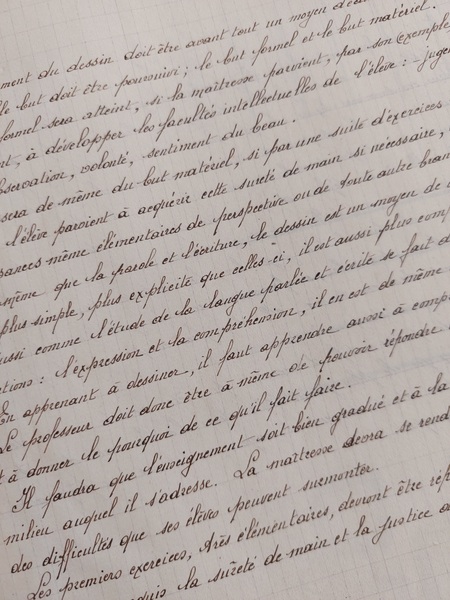 ment du dessin doit être avant tout un moyen d'édu
le but doit être poursuivi; le but formel et le but matériel.
formel sera atteint, si la maîtresse parvient, par son exemple
nt, à développer les facultés intellectuelles de l'élève: -juge
observation, volonté, sentiment du beau.
sera de même du but matériel, si par une suite d'exercices
l'élève parvient à acquérir cette sureté de main si nécessaire,
sances même élémentaires de perspective ou de toute autre bran
même que la parole et l'écriture, le dessin est un moyen de
plus simple, plus explicite que celles-ci, il est aussi plus comp
ussi comme l'étude de la langue parlée et écrite se fait d
ctions: l'expression et la compréhension, il en est de même
En apprenant à dessiner, il faut apprendre aussi à comp
Le professeur doit donc être à même de pouvoir répondre
t à donner le pourquoi de ce qu'il fait faire.
Il faudra que l'enseignement soit bien gradué et à la
milieu auquel il s'adresse. La maîtresse devra se rend
des difficultés que ses élèves peuvent surmonter.
Les premiers exercices, très élémentaires, devront être rép
la sûreté de main et la justice